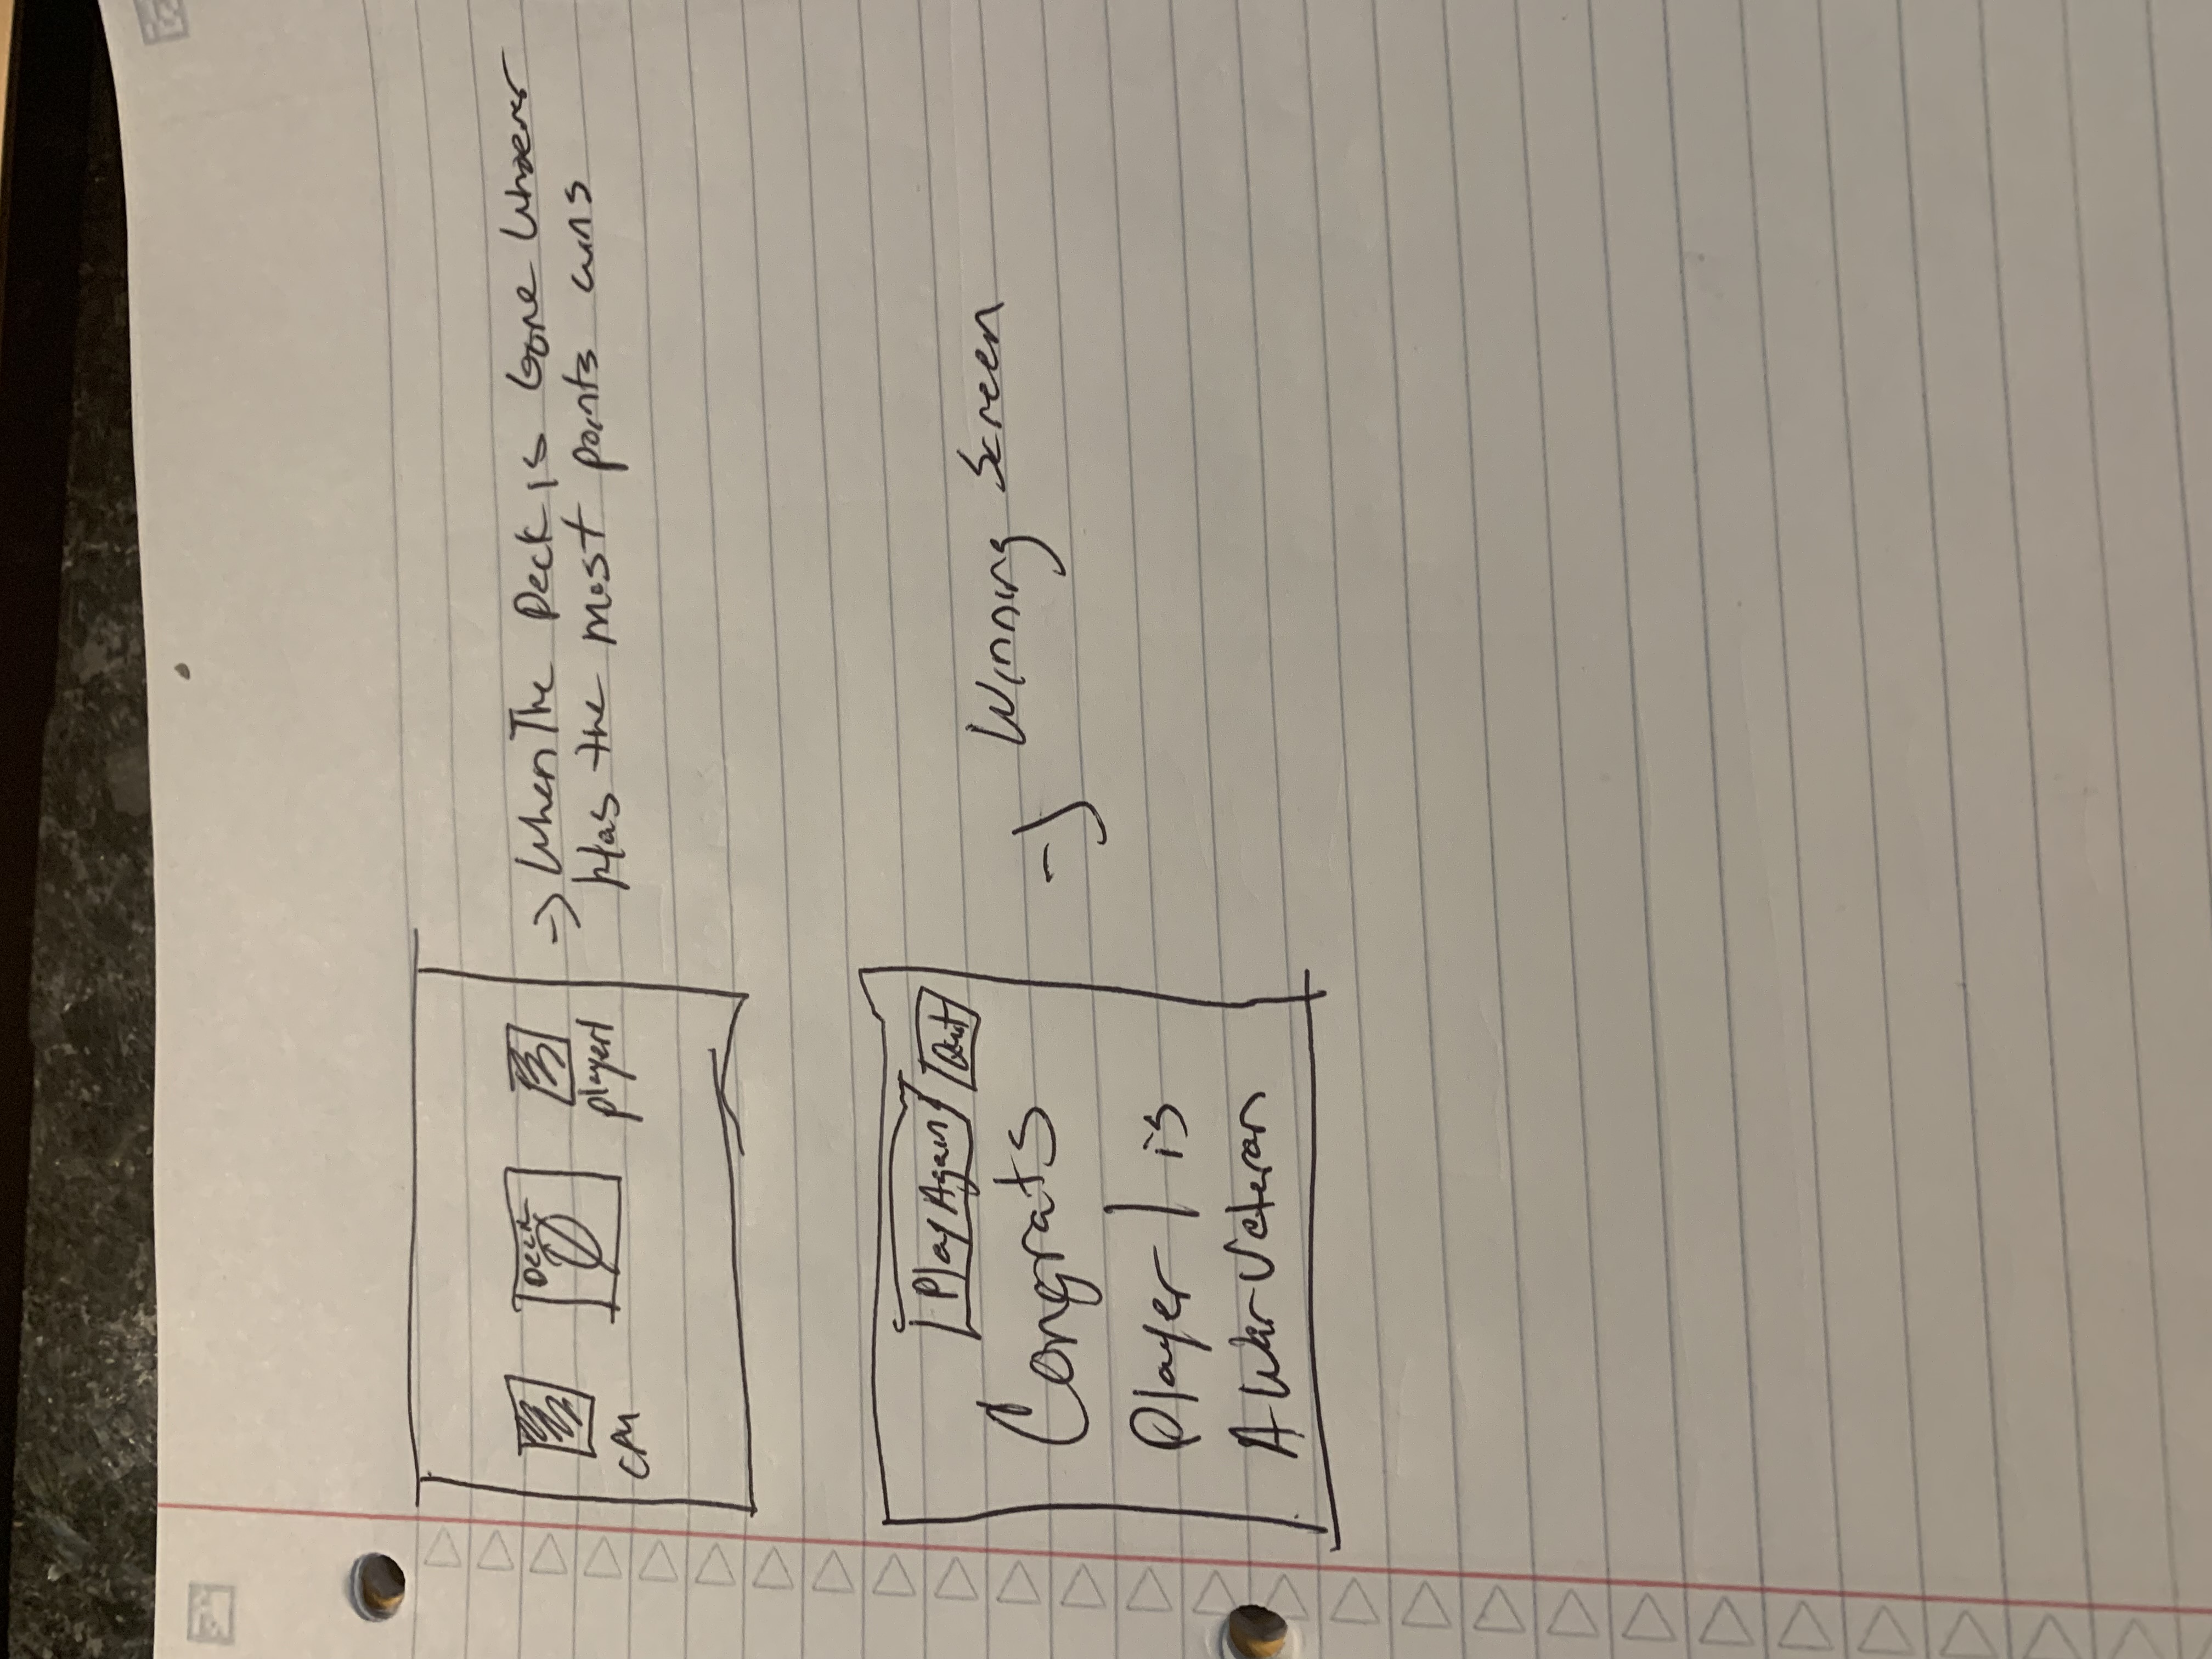 Deck
0
CPU
player1
-> When The Deck is Gone Whoever
Has the most points wins
Play Again
Quit
Congrats
Player 1 is
A War Veteran
-> Winning Screen